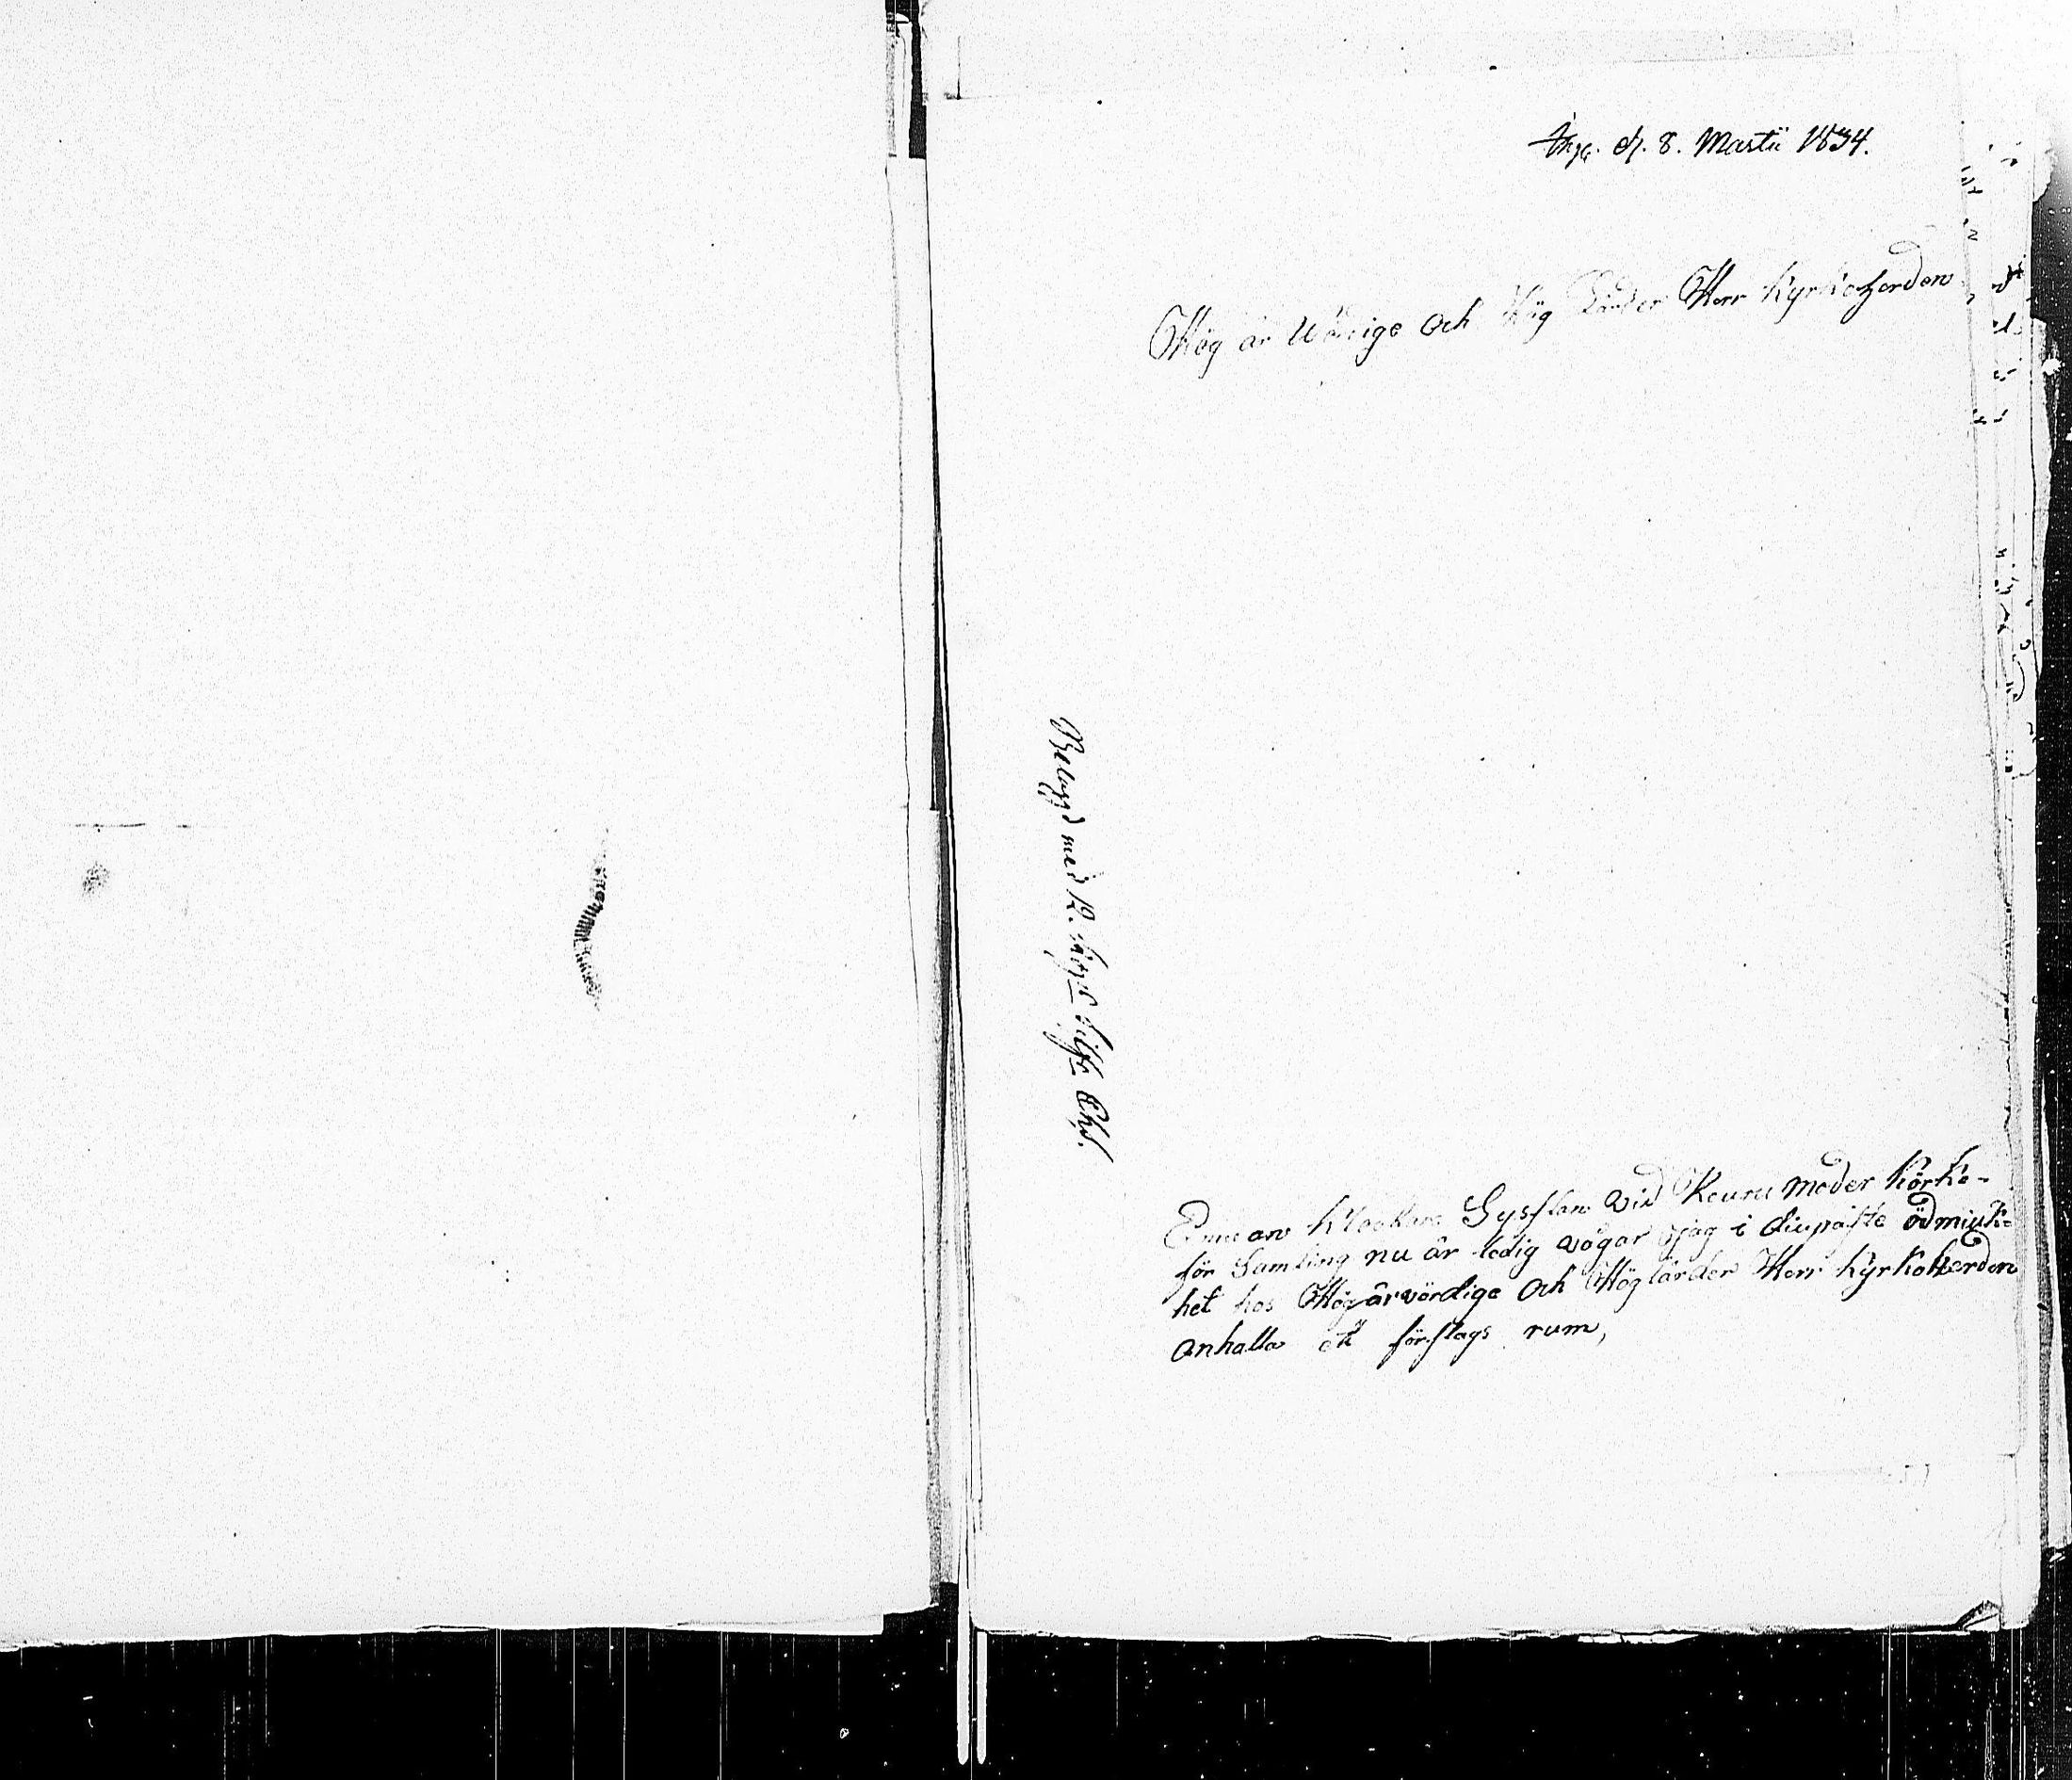 Ing. d. 8. Martii 1834.
Hög är Wörtige Och Hög Lärder Herr Kyrkoherden
Belagd med 12. Silfr. Chs.
Klockare Sysslan vid Keuru moder körke-
för Samling nu är ledig vågar jag i diupaste ödmiuk-
het hos Högärvördige Och Höglärder Herr Kyrkoherden
anhalla ett förslags rum,